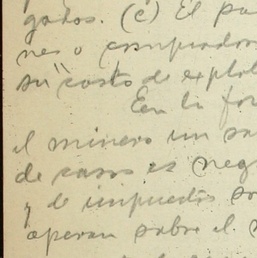 gados. (c) El pa
nes o comprador
su "costo de explot
En la for
el minero un sa
de casos es neg
y de impuestos so
operan sobre el m